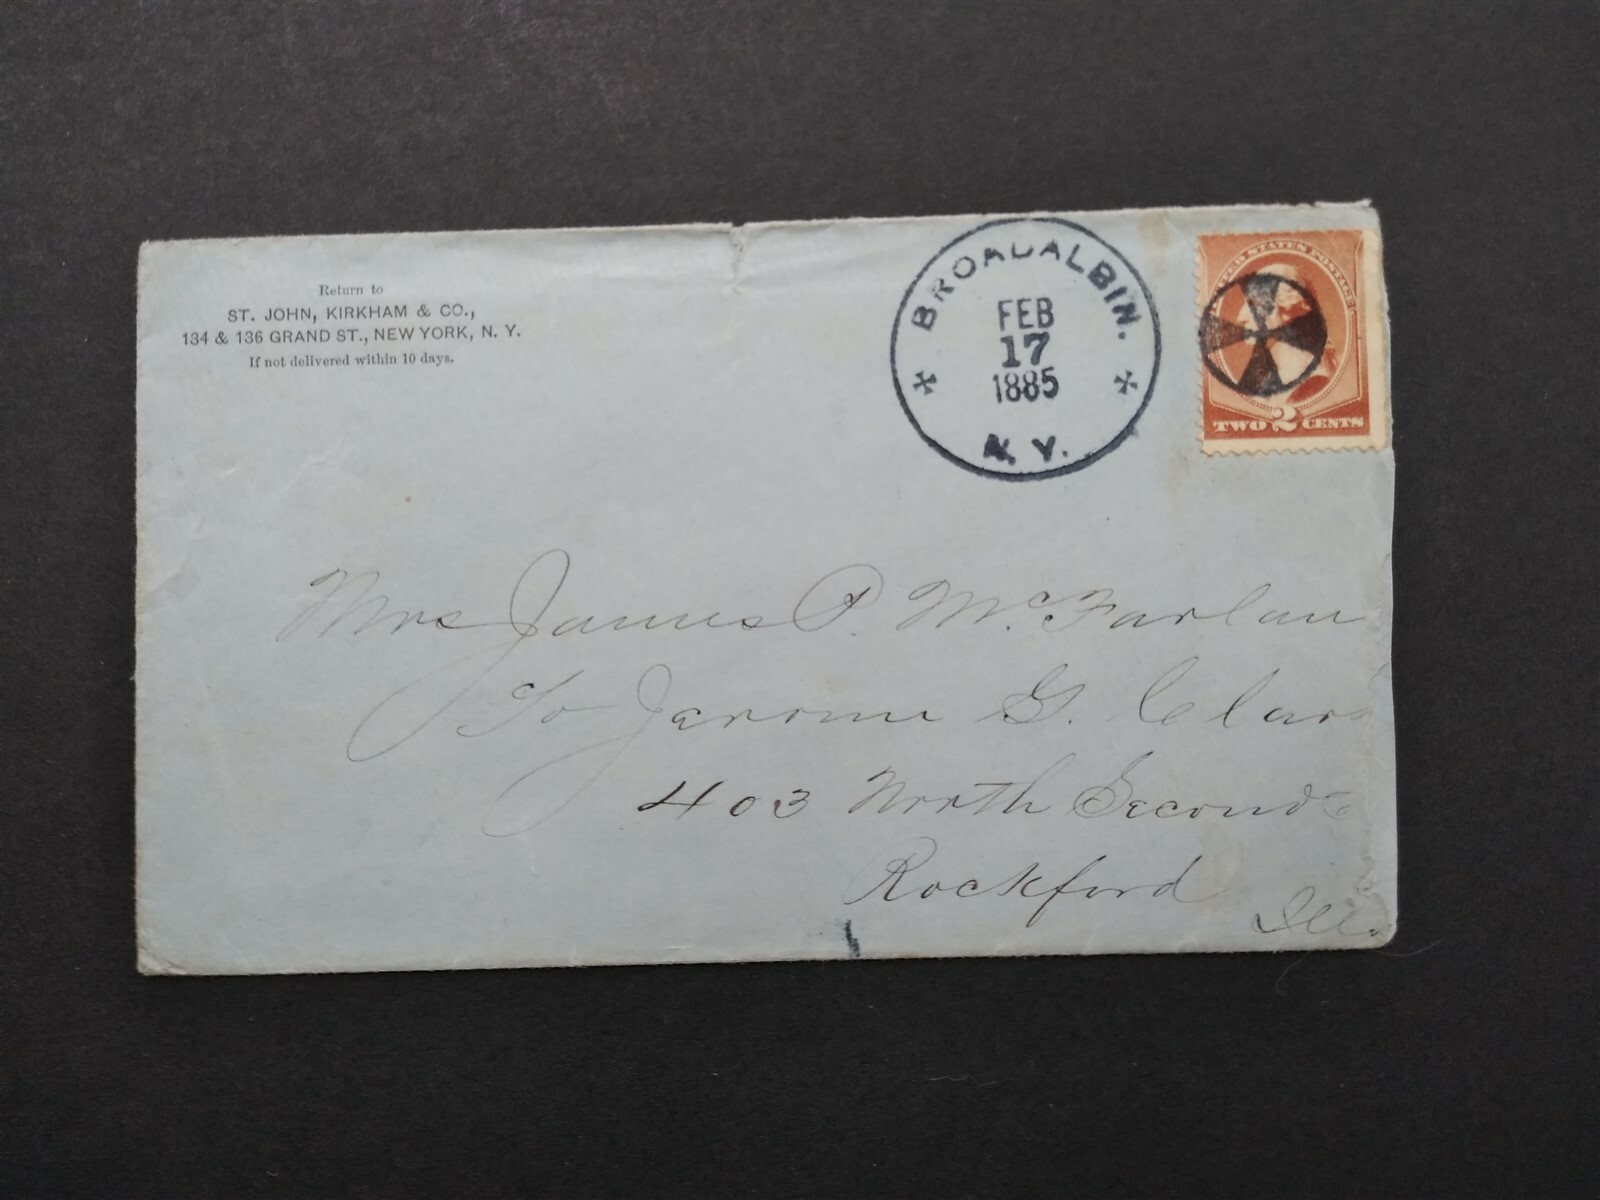 Return to
ST. JOHN, KIRKHAM & CO.,
134 & 136 GRAND ST., NEW YORK, N. Y.
If not delivered within 10 days.
BROADALBIN.
FEB
17
1885
N. Y.
UNITED STATES POSTAGE
TWO 2 CENTS
Mrs James P. McFarlan
To Jerome G. Clar
403 North Second
Rockford
Ills